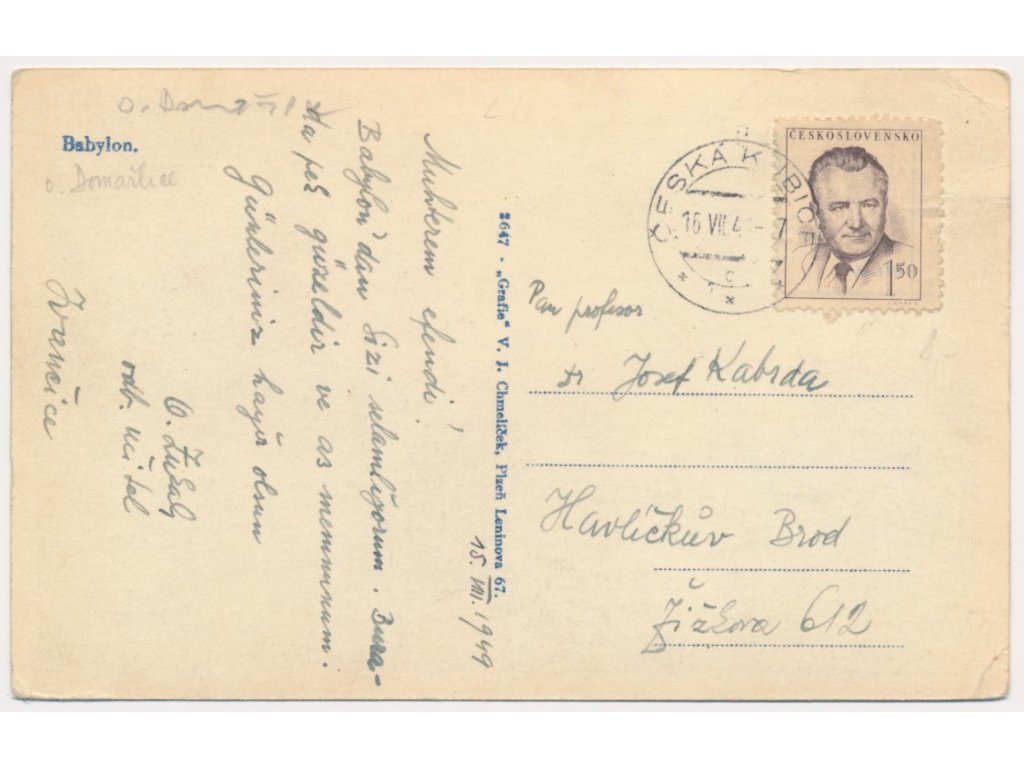 o. Domažl
Babylon.
o. Domažlice
Muhterem efendi!
Babylon'dan Sizi selamliyorum. Bura-
da pek güzeldir ve as memnunum.
Günleriniz hayır olsun
odb. učitel
Ivančice
15. VIII. 1949
2647 - „Grafie" V. J. Chmelíček, Plzeň Leninova 67.
ČESKÁ KUBICE
16 VII.4 -7
c
ČESKOSLOVENSKO
1 50
Pan profesor
Dr Josef Kabrda
Havlíčkův Brod
Žižkova 612